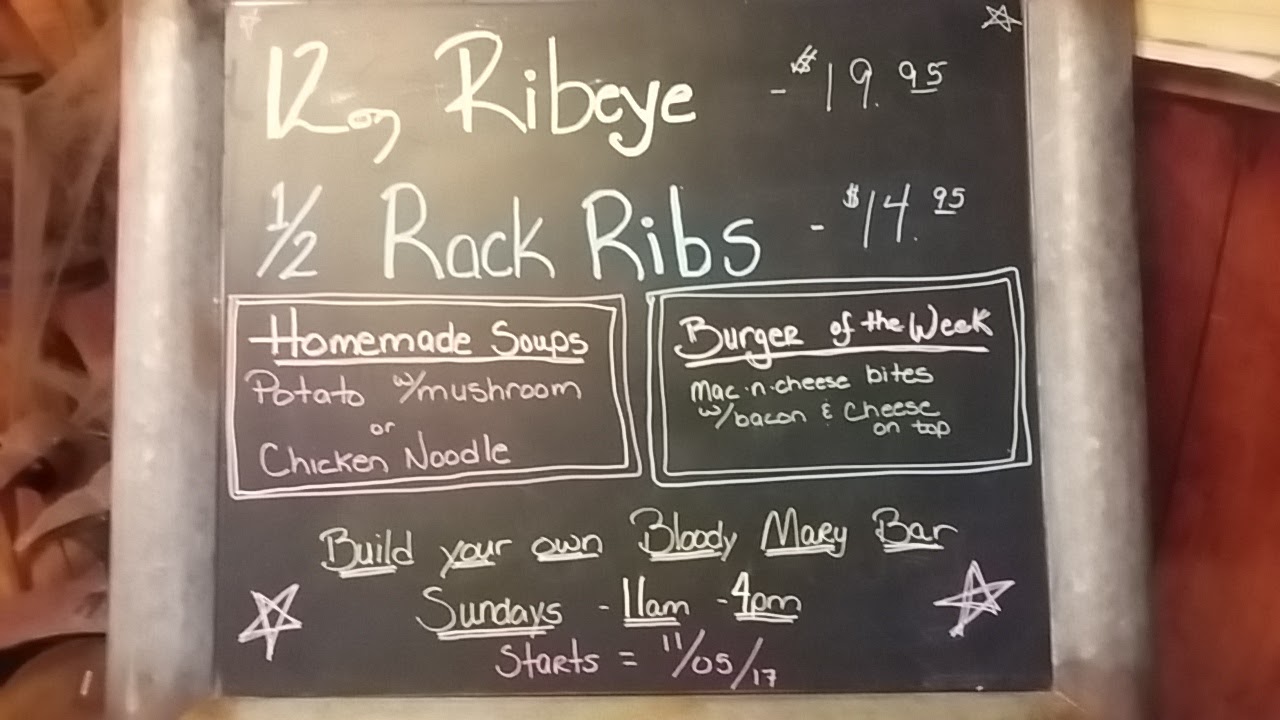 12oz Ribeye - $19.95
1/2 Rack Ribs - $14.95
Homemade Soups
Potato w/mushroom
or
Chicken Noodle
Burger of the Week
Mac-n-cheese bites
w/bacon & Cheese
on top
Build your own Bloody Mary Bar
Sundays - 11am - 4pm
Starts = 11/05/17